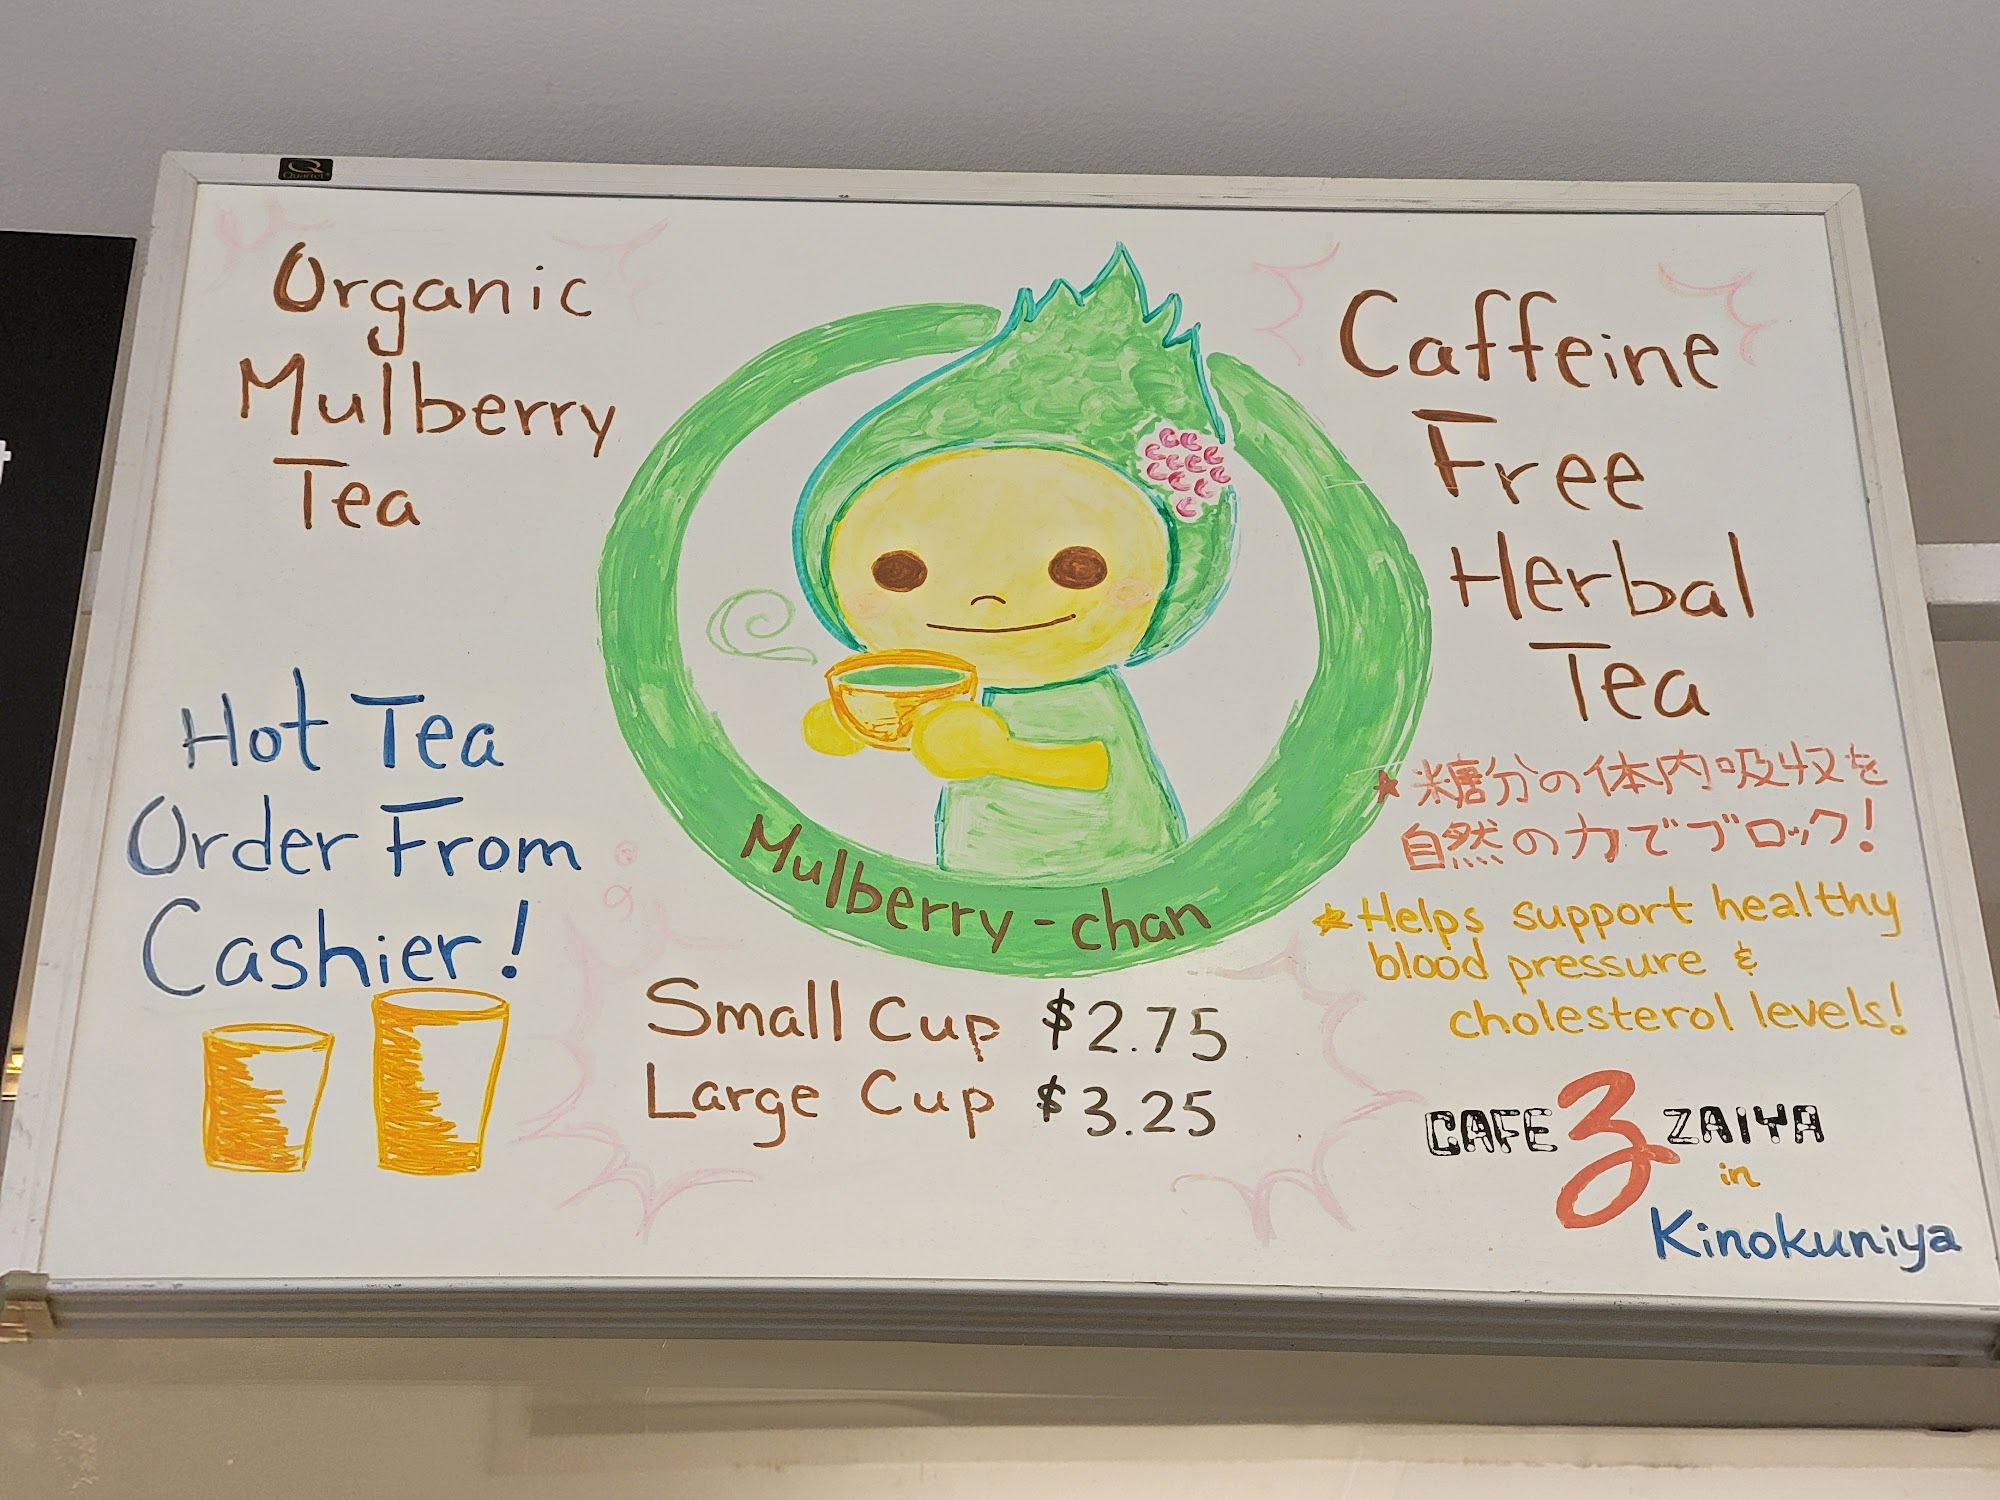 Quartet
Organic
Mulberry
Tea
Caffeine
Free
Herbal
Tea
Hot Tea
Order From
Cashier!
Mulberry-chan
Small Cup $2.75
Large Cup $3.25
★糖分の体内吸収を
自然の力でブロック!
★Helps support healthy
blood pressure &
cholesterol levels!
CAFE Z ZAIYA
in
Kinokuniya